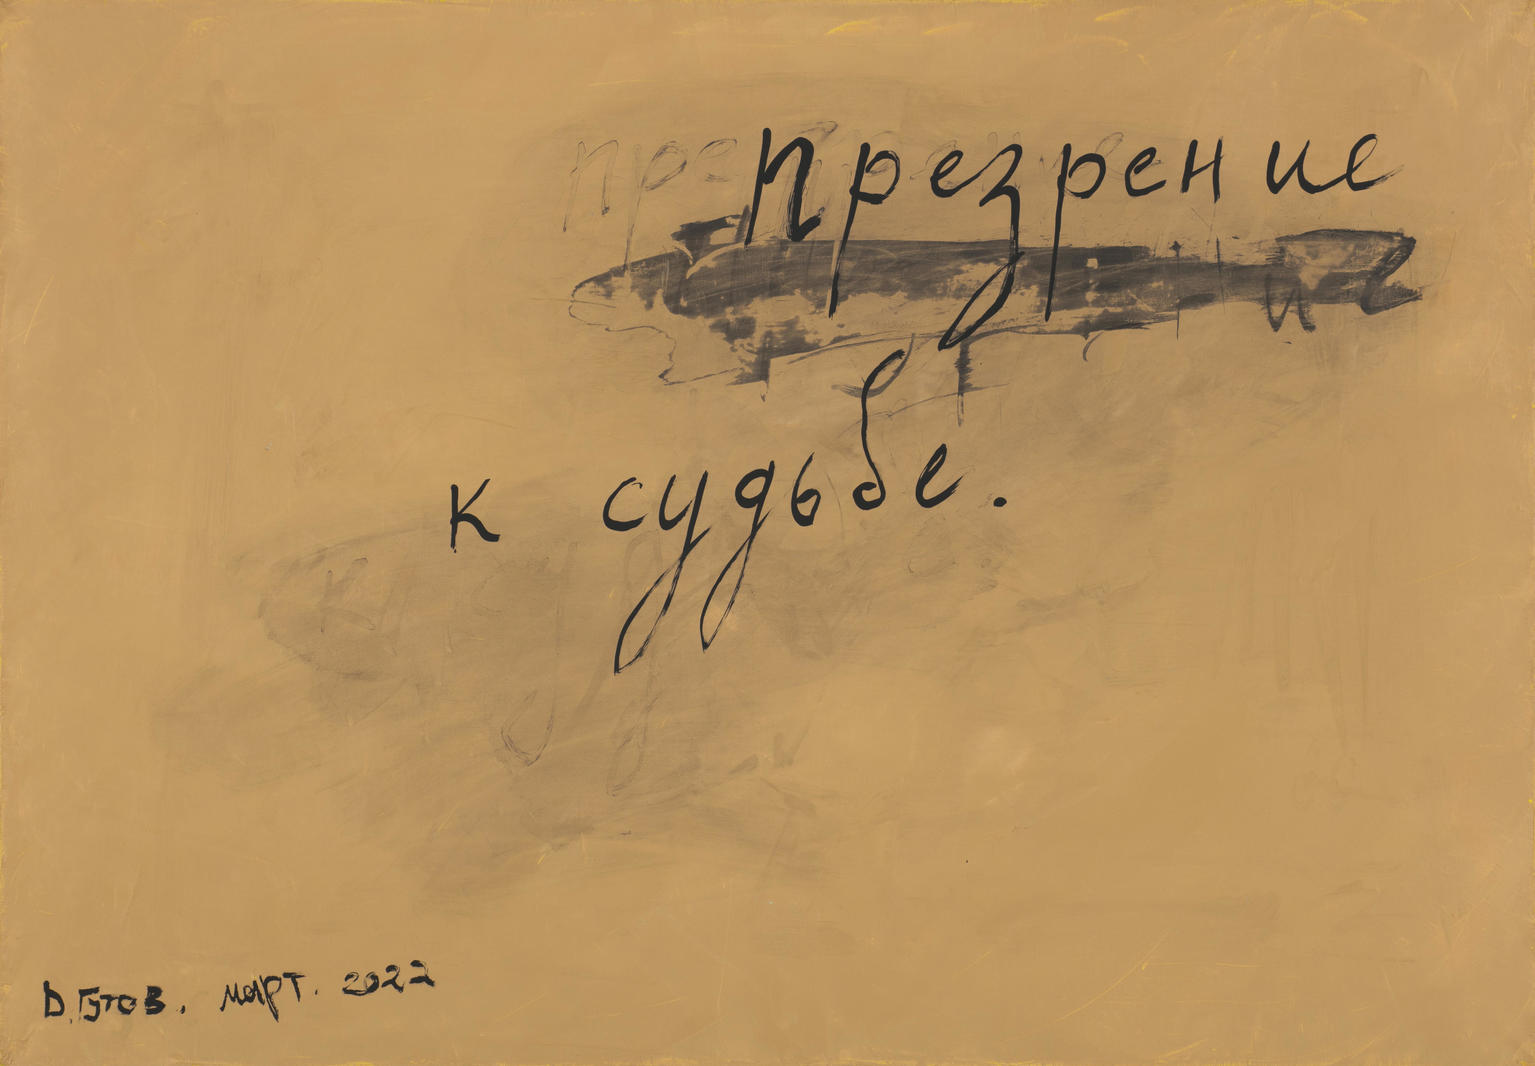 презрение
к судьбе.
D. Гутов. март. 2022